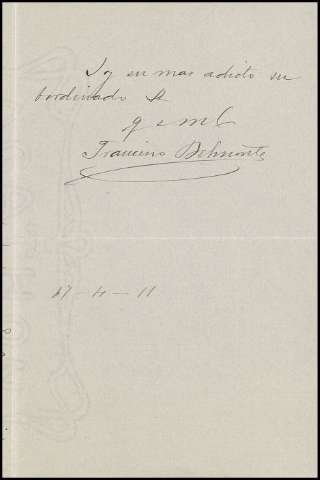 Soy su mas adicto su
bordinado Q
q s m b
Francisco Belmonte
27-4-11